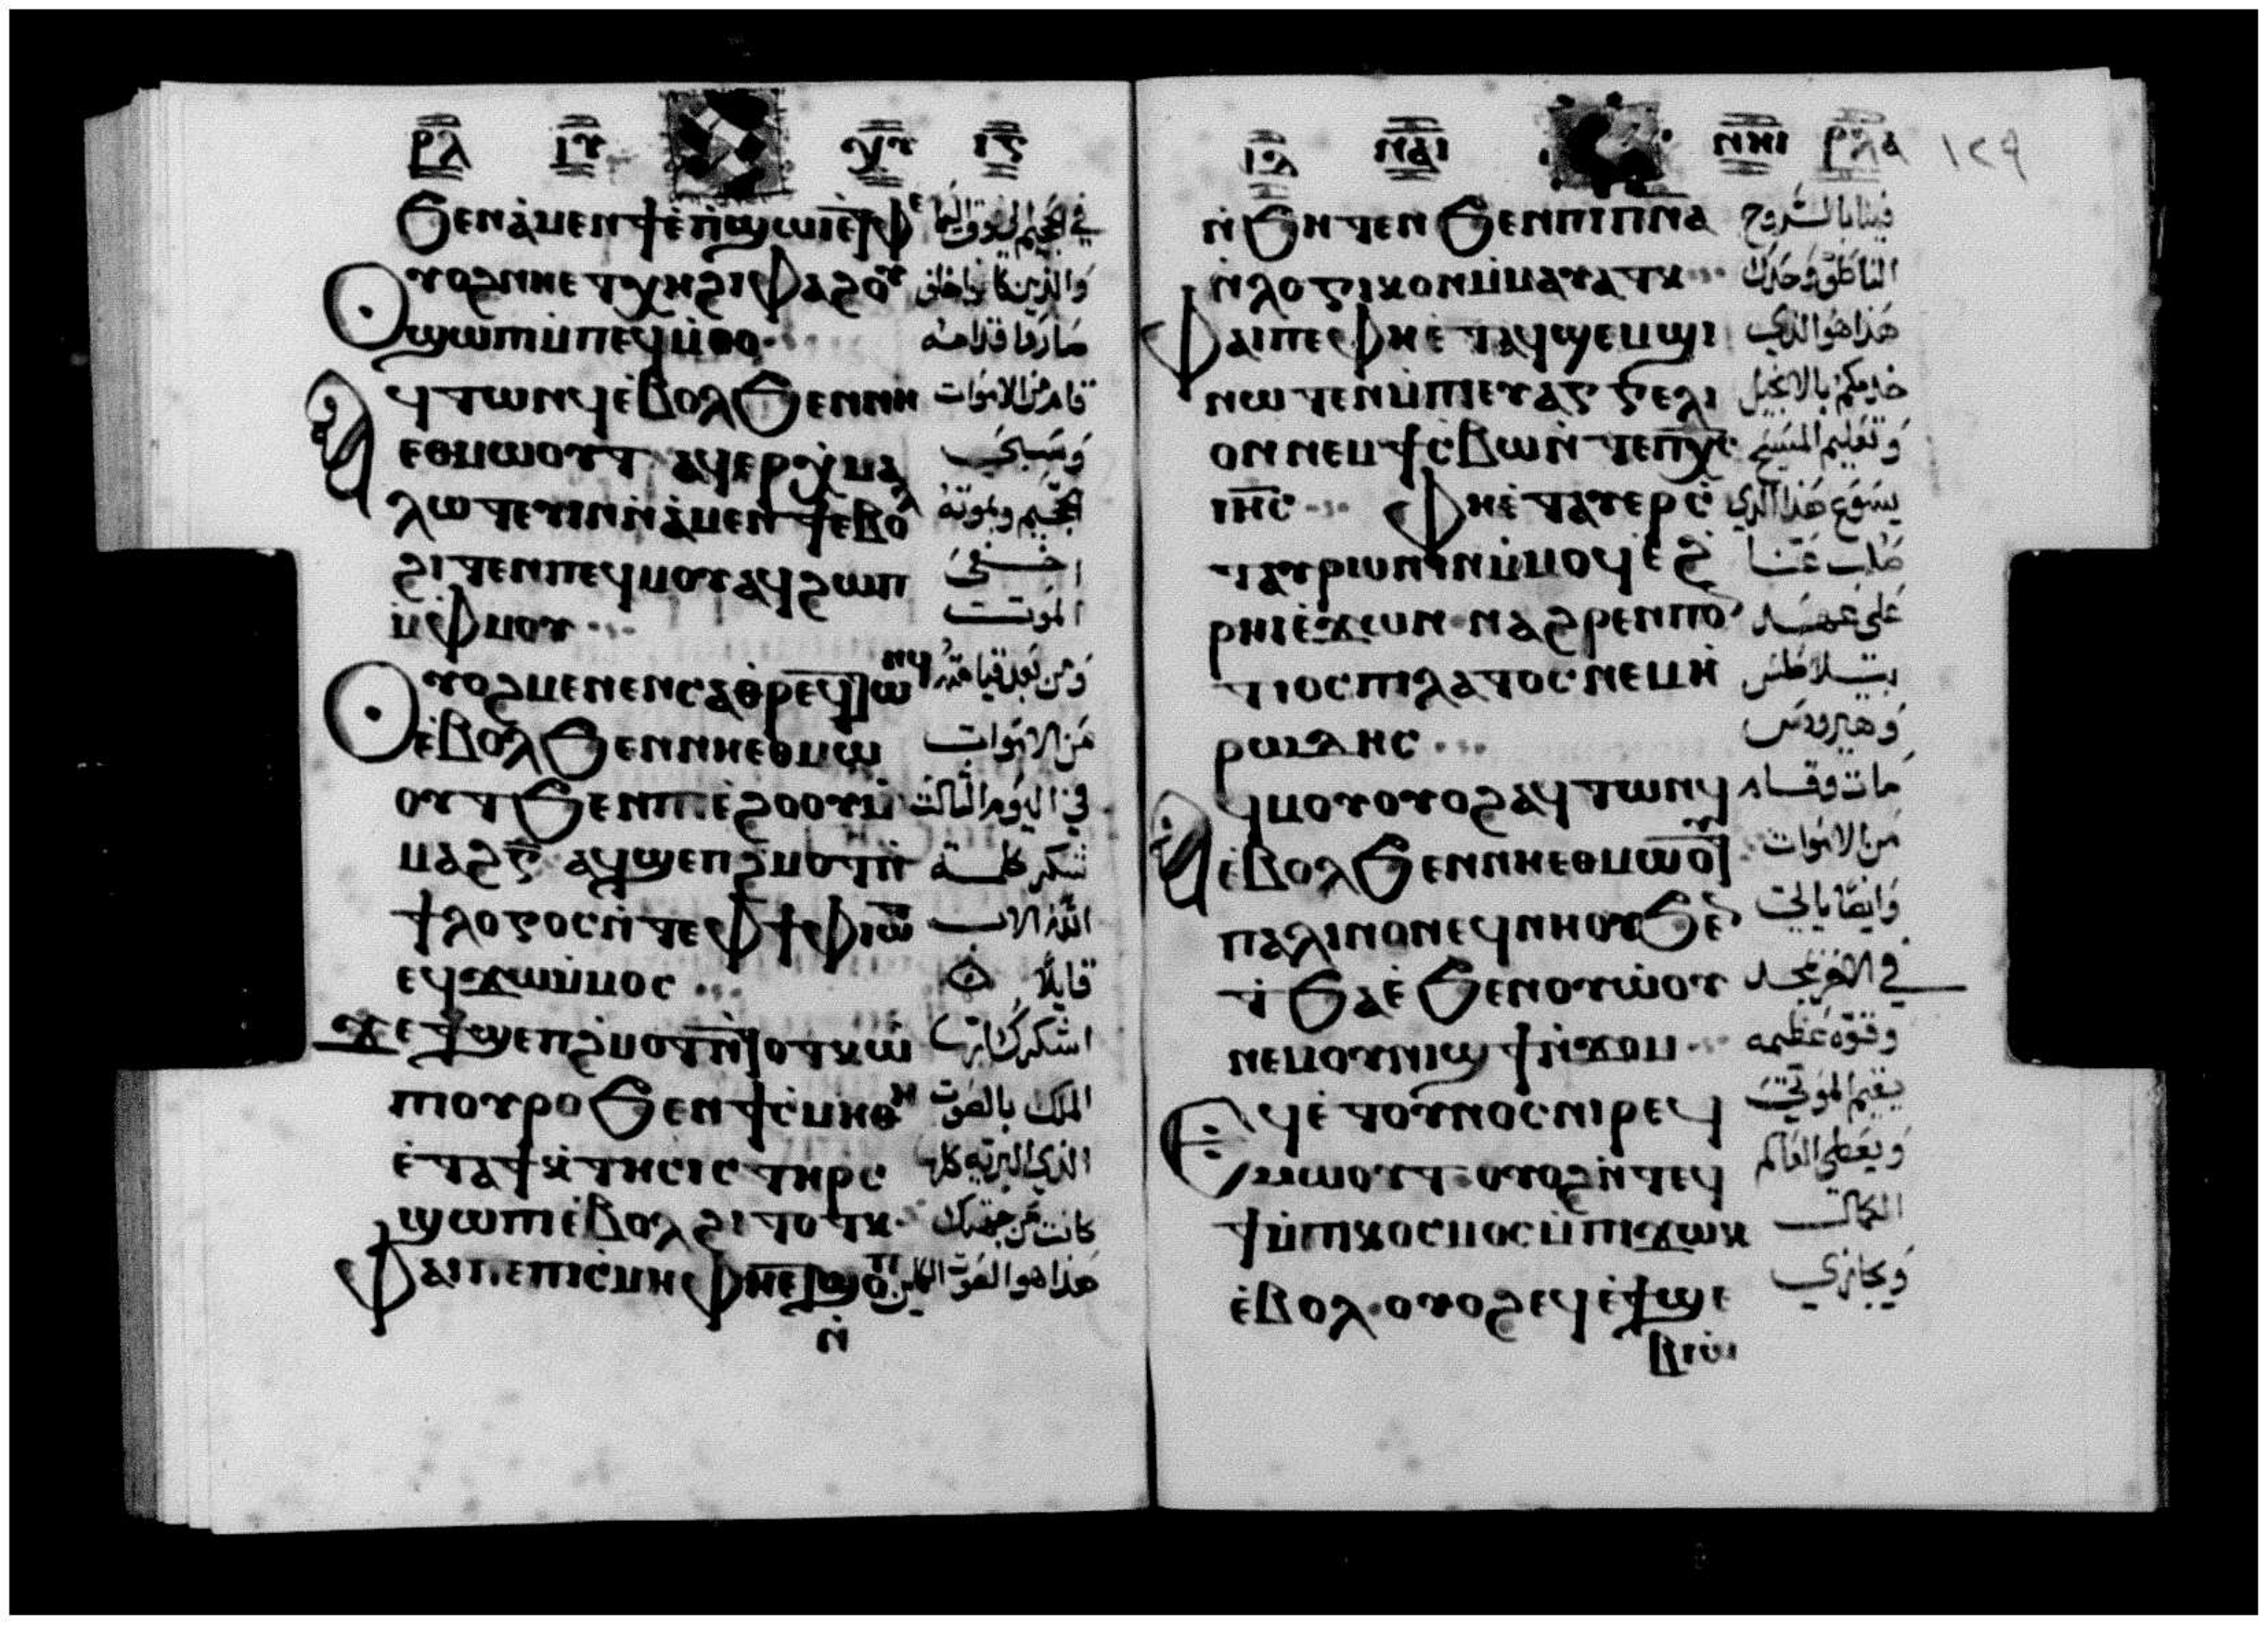 ⲣⲗ ⲓⲩ ⲭⲩ ⲓⲋ
ϧⲉⲛⲁ̀ⲙⲉⲛϯⲉ̀ⲡ̀ϣⲱⲓ
ⲟⲩⲟϩⲛⲏⲉⲧⲭⲏϩⲓⲫⲁϩⲟⲩ
ϣⲱⲡⲓⲙ̀ⲡⲉϥⲙ̀ⲑⲟ صاروا قدامه
ⲁϥⲧⲱⲛϥⲉ̀ⲃⲟⲗϧⲉⲛⲛⲏ قام من الاموات
ⲉⲑⲙⲱⲟⲩⲧ ⲁϥⲉⲣⲭ̀ⲙⲁ وسبى
ⲗⲱⲧⲉⲩⲓⲛⲛ̀ⲁ̀ⲙⲉⲛϯⲉⲃⲟⲗ الجحيم وبموته
ϩⲓⲧⲉⲛⲡⲉϥⲙⲟⲩⲁϥϩⲱⲡ اختفى
ⲙ̀ⲫⲙⲟⲩ الموت
ⲟⲩⲟϩⲙⲉⲛⲉⲛⲥⲁⲑⲣⲉϥⲧⲱⲛϥ ومن بعد قيامته
ⲉ̀ⲃⲟⲗϧⲉⲛⲛⲏⲉⲑⲙⲱ من الاموات
ⲟⲩⲧϧⲉⲛⲡⲓⲉ̀ϩⲟⲟⲩⲙ̀ في اليوم الثالث
ⲙⲁϩⲅ̅ ⲁϥϣⲉⲡϩ̀ⲙⲟⲧⲛ̀ تشكر كلمة
ϯⲗⲟⲅⲟⲥⲛ̀ⲧⲉⲫϯⲫⲓⲱⲧ الله الاب
ⲉϥϫⲱⲙ̀ⲙⲟⲥ قايلًا
ϫⲉϯϣⲉⲡϩ̀ⲙⲟⲧⲛ̀ⲧⲟⲧⲕⲱ̀
ⲡⲓⲟⲩⲣⲟϧⲉⲛϯⲥ̀ⲙⲏⲑⲏ الملك بالصوت
ⲉ̀ⲧⲁϯⲕ̀ⲧⲏⲥⲓⲥⲧⲏⲣⲥ الذي البرية كلها
ϣⲱⲡⲓⲉ̀ⲃⲟⲗϩⲓⲧⲟⲧⲕ كانت من جهتك
ⲫⲁⲓⲡⲉⲡⲓⲥ̀ⲙⲏⲫⲏⲉⲧϣⲟⲡ هذا هو الصوت الكاين
ⲛ̀
ⲓⲗ ⲛⲁⲓ ⲛⲏⲓ ⲣⲗⲁ ١٢٩
ⲛ̀ϧⲏⲧⲉⲛϧⲉⲛⲡⲓⲡⲛⲁ فينا بالروح
ⲛ̀ⲗⲟⲅⲓⲕⲟⲛⲙ̀ⲙⲁⲩⲁⲧⲕ الناطق وحدك
ⲫⲁⲓⲡⲉⲫⲏⲉ̀ⲧⲁϥϣⲉⲙϣⲓ هذا هو الذي
ⲛⲱⲧⲉⲛⲙ̀ⲡⲓⲉⲩⲁⲅⲅⲉⲗⲓ خدمكم بالانجيل
ⲟⲛⲛⲉⲙϯⲥ̀ⲃⲱⲛ̀ⲧⲉⲡⲭⲥ وتعليم المسيح
ⲓⲏⲥ ⲫⲏⲉ̀ⲧⲁⲩⲉⲣⲥ̀ يسوع هذا الذي
ⲧⲁⲩⲣⲱⲛⲓⲛⲙ̀ⲙⲟϥⲉ̀ϩ صلب عنا
ⲣⲏⲓⲉ̀ϫⲱⲛ ⲛⲁϩⲣⲉⲛⲡⲟⲛ على عهد
ⲧⲓⲟⲥⲡⲓⲗⲁⲧⲟⲥⲛⲉⲙⲏ̀ بيلاطس
ⲣⲱⲇⲏⲥ وهيرودس
ⲁϥⲙⲟⲩⲟⲩⲟϩⲁϥⲧⲱⲛϥ مات وقام
ⲉ̀ⲃⲟⲗϧⲉⲛⲛⲏⲉⲑⲙⲱⲟⲩⲧ من الاموات
ⲡⲁⲗⲓⲛⲟⲛⲉϥⲛⲏⲟⲩϧⲉⲛ وايضًا ياتي
ⲧ̀ϧⲁⲉ̀ϧⲉⲛⲟⲩⲱ̀ⲟⲩ
ⲛⲉⲙⲟⲩⲛⲓϣϯⲛ̀ϫⲟⲙ وقوة عظيمه
ⲉϥⲉ̀ⲧⲟⲩⲛⲟⲥⲛⲓⲣⲉϥ يقيم الموتى
ⲙⲱⲟⲩⲧ ⲟⲩⲟϩⲛ̀ⲧⲉϥ ويعطى العالم
ϯⲙ̀ⲡⲓⲕⲟⲥⲙⲟⲥⲙ̀ⲡⲓϫⲱⲕ الكمال
ⲉ̀ⲃⲟⲗ ⲟⲩⲟϩⲉϥⲉ̀ϯϣⲉ ويجازي
ⲃⲓⲱ̀